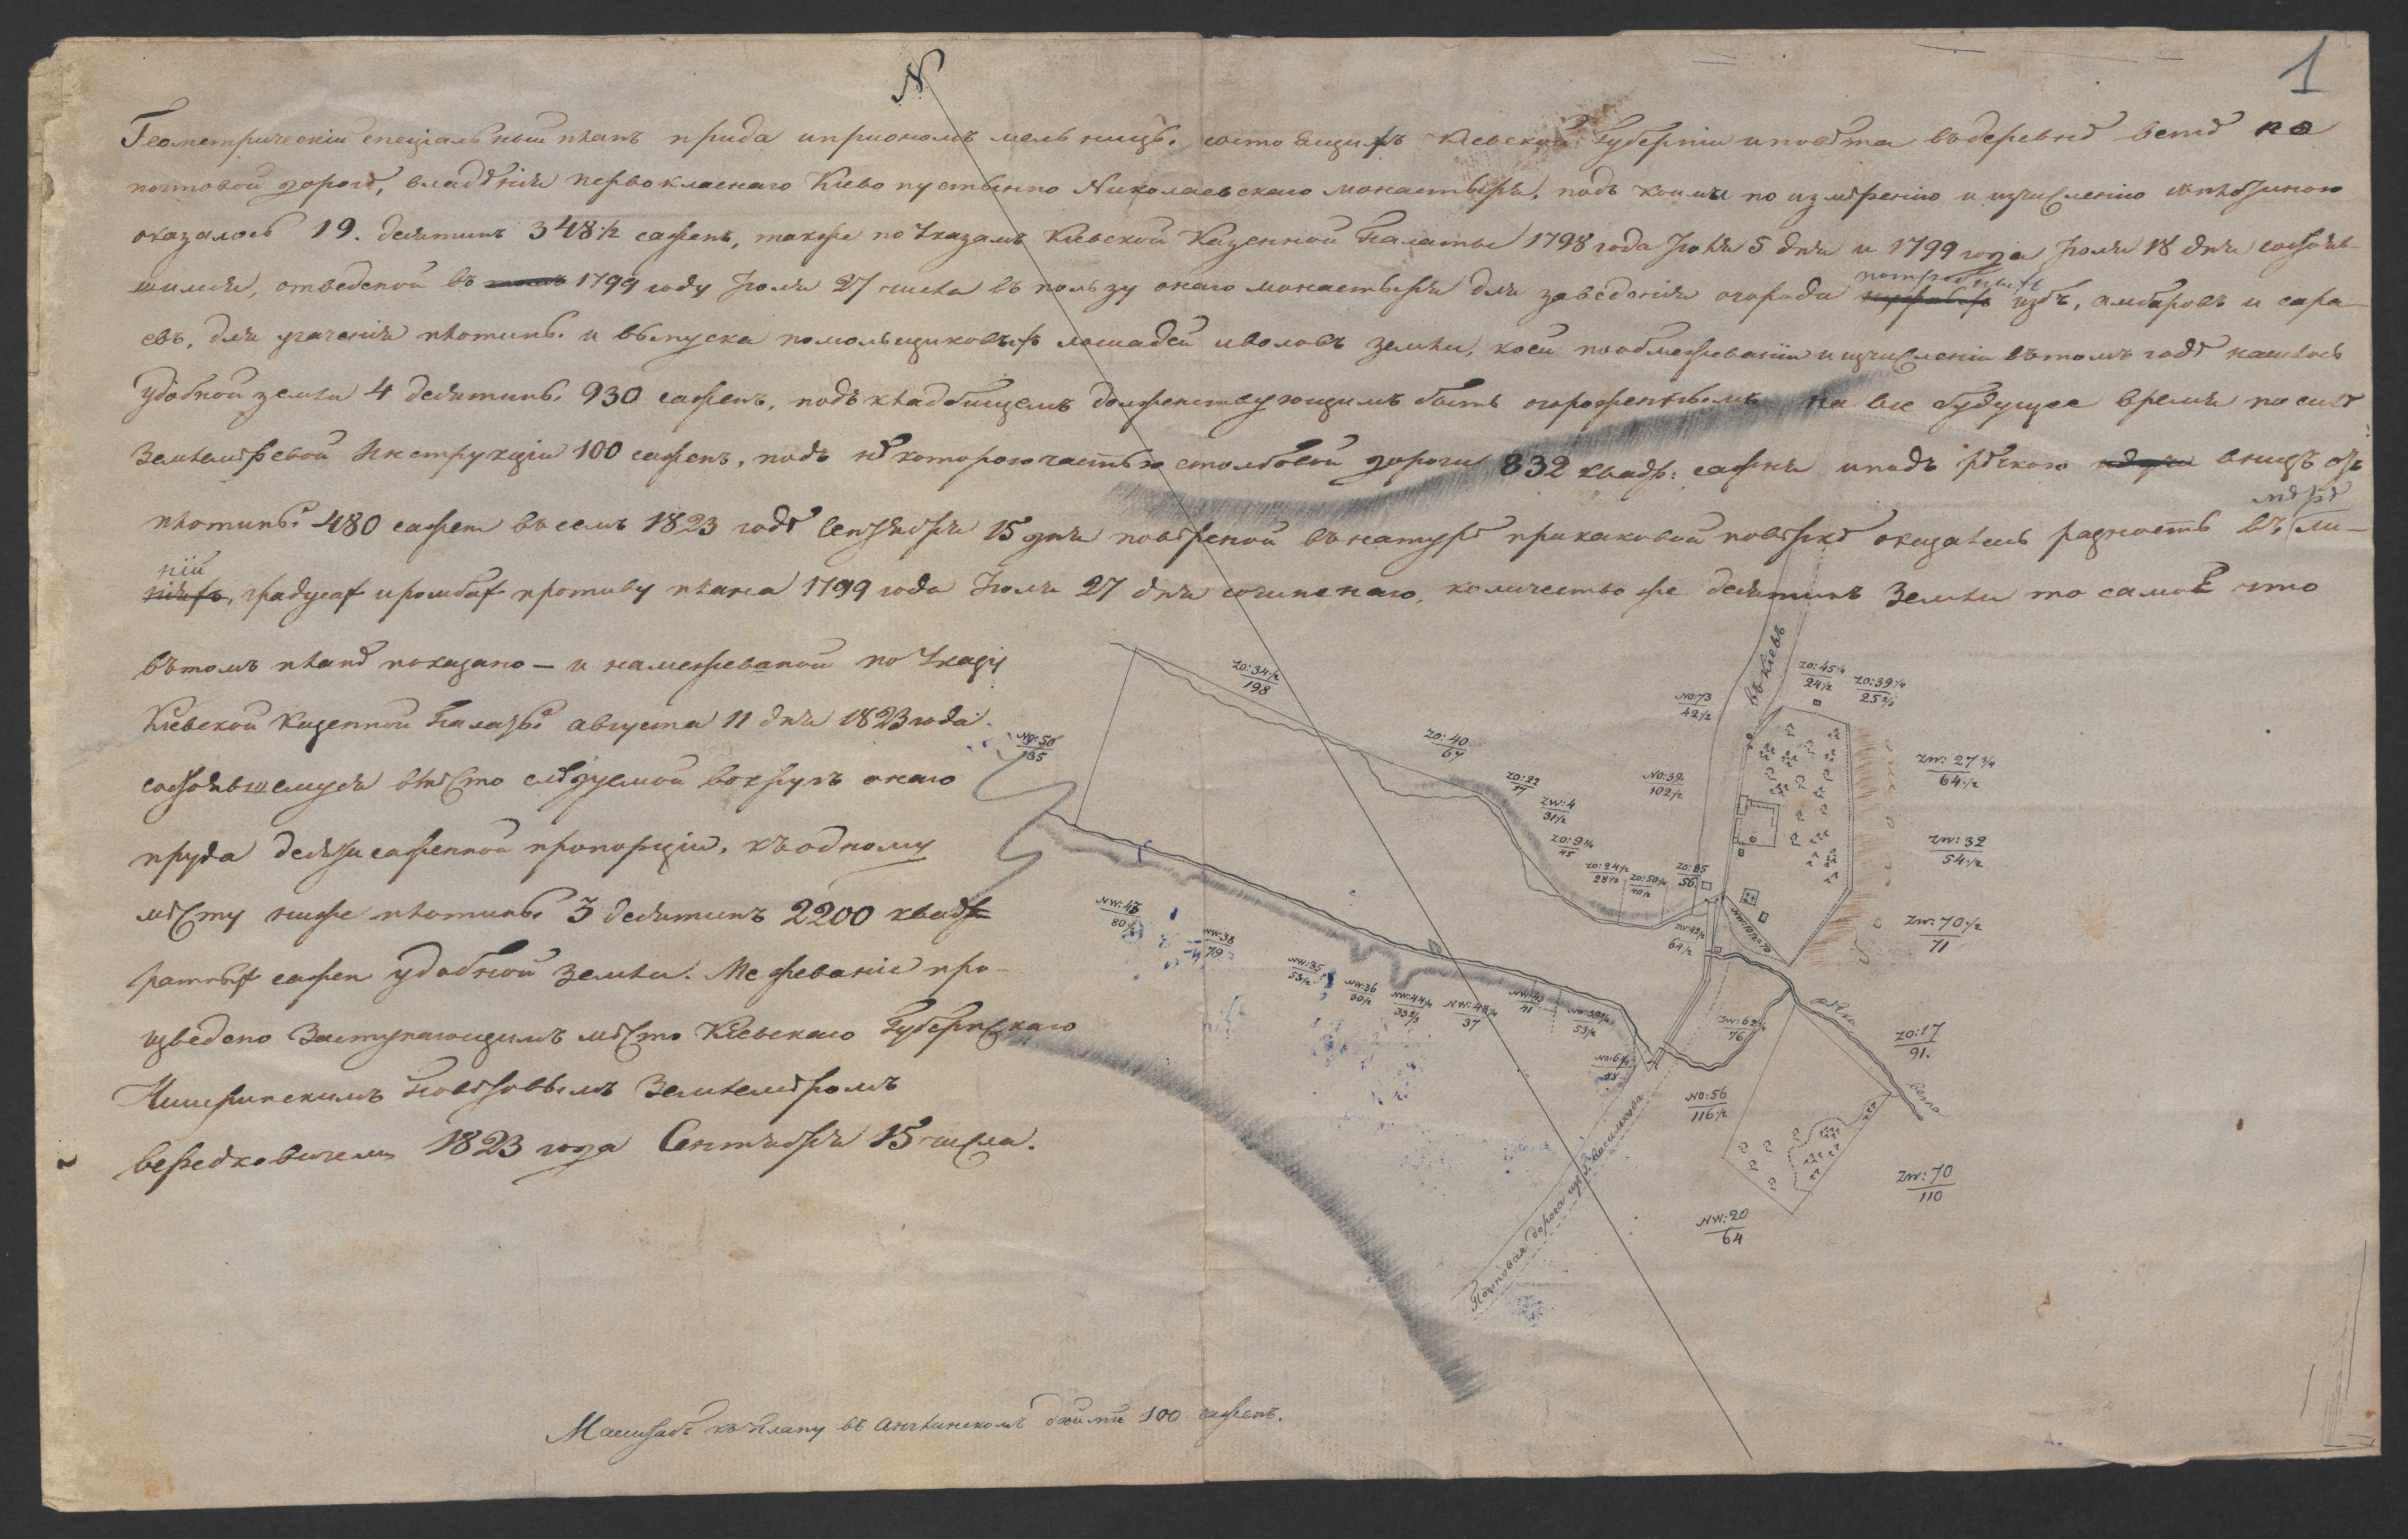 1
N
Геометрическій спеціальный планъ пруда и при ономъ мельницы состоящихъ Кіевской Губерніи и повѣта въ деревнѣ ветѣ на
почтовой дорогѣ, владѣнія первокласнаго Кіево пустынно Николаевскаго монастыря, подъ коимы по измѣренію и изчисленію
оказалось 19. десятинъ 348½ сажень, также по Указамъ Кіевской Казенной Палаты 1798 года Іюля 5 дня и 1799 года Іюля 18 дня состояв-
шимся, отведеной въ 1799 году Іюля 27 числа въ пользу онаго монастыря для заведенія огорода потребныхъ избъ, амбаровъ и сара-
евъ, для гаченія плотины и выпуска помольщиковыхъ лошадей и воловъ земли, коей по обмежеванію и изчисленію въ томъ годѣ нашлось
удобной земли 4 десятины 930 сажень, подъ кладбищемъ долженствующимъ быть огорожeннымъ на все будущее время по силѣ
Землемѣревой Инструкціи 100 сажень, подъ нѣкоторою частью столбовой дороги 832 квадр: сажня и подъ рѣчкою внизъ отъ
плотины 480 сажен въ семъ 1823 годѣ Сентября 15 дня повѣреной въ натурѣ при каковой повѣркѣ оказалась разность въ мѣрѣ ли-
ній, градусахъ и ромбахъ противу плана 1799 года Іюля 27 дня сочиненаго, количество же десятинъ Земли то самое что
въ томъ планѣ показано — и намежеваной по Указу
Кіевской Казенной Палаты августа 11 дня 1823 года
состоявшемуся вмѣсто слѣдуемой вокругъ онаго
пруда десятисаженной пропорціи, къ одному
мѣсту ниже плотины 3 десятинъ 2200 квад-
ратныхъ сажен удобной земли. Межеваніе про-
изведено Заступающимъ мѣсто Кіевскаго Губернскаго
Повѣтовымъ Землемѣромъ
1823 года Сентября 15 числа.
въ Кіевъ
ZO: 34½
198
NO: 50
135
ZO: 40
67
ZO: 22
17
ZW: 4
31½
ZO: 9¾
45
NO: 73
42½
NO: 39.
102½
ZO: 45¼
24½
ZO: 39¼
ZW: 27¾
64½
ZW: 32
54½
ZW: 70½
71
NW: 38
79
NW: 35
53½
NW: 36
30½
37
41
рѣка
вета
ZO: 17
91.
NO: 56
116½
ZW: 70
110
NW: 20
64
Почтовая дорога изъ Г. Василькова
Маштабъ къ плану въ англинскомъ дюймѣ 100 сажень.